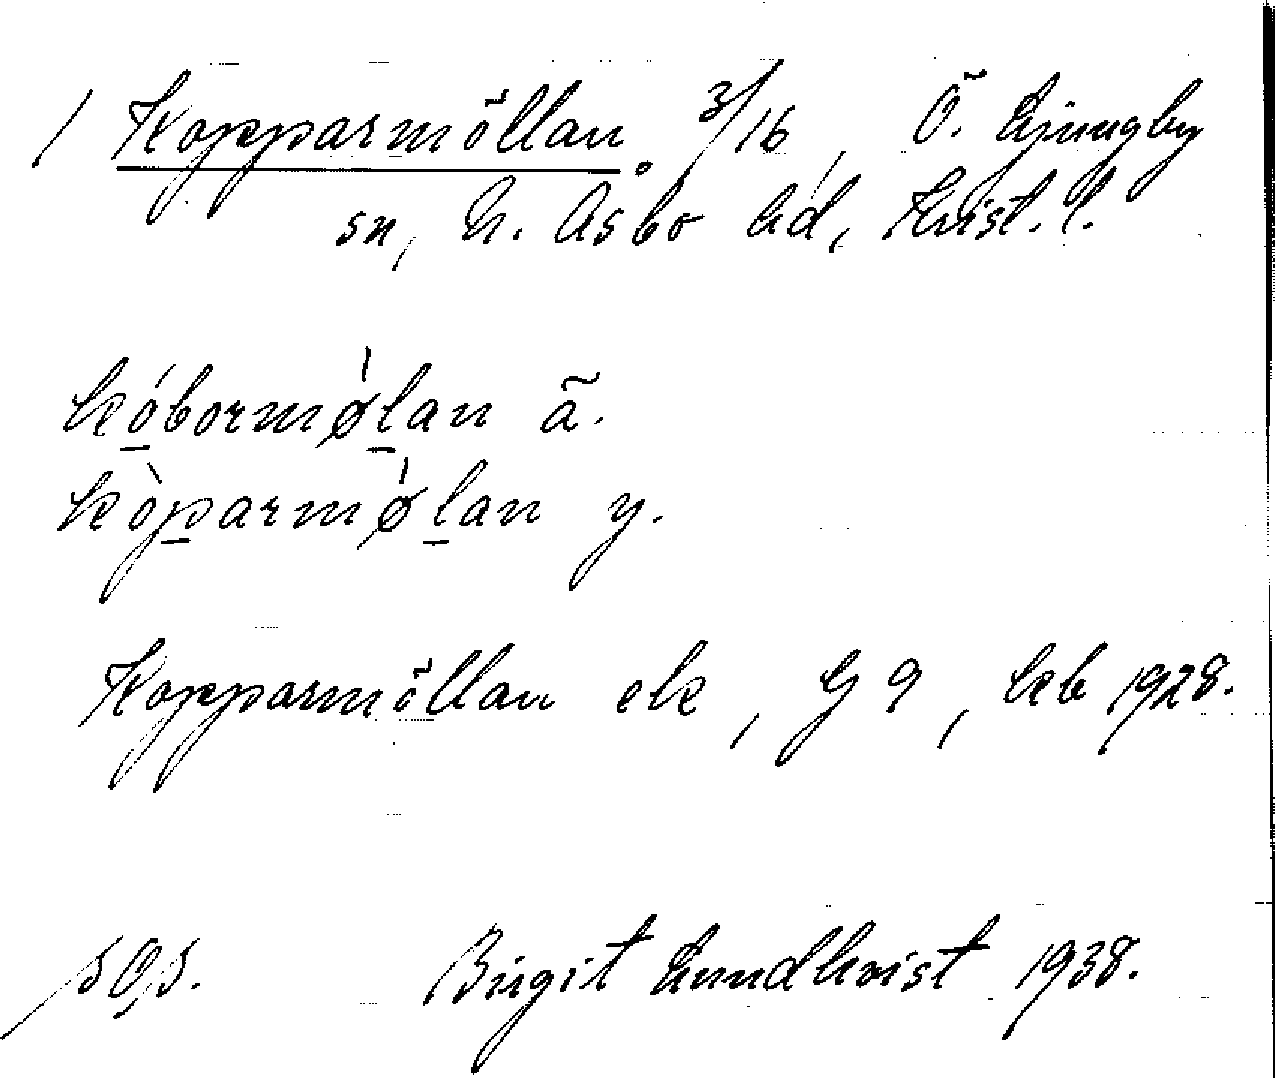 1 Kopparmöllan 3/16, Ö. Ljungby
sn, N. Åsbo hd, Krist. l.
kóbormø̍lan ä.
kòparmø̍lan y.
Kopparmöllan ek, G 9, kb 1928.
SOS. Birgit Lundkvist 1938.